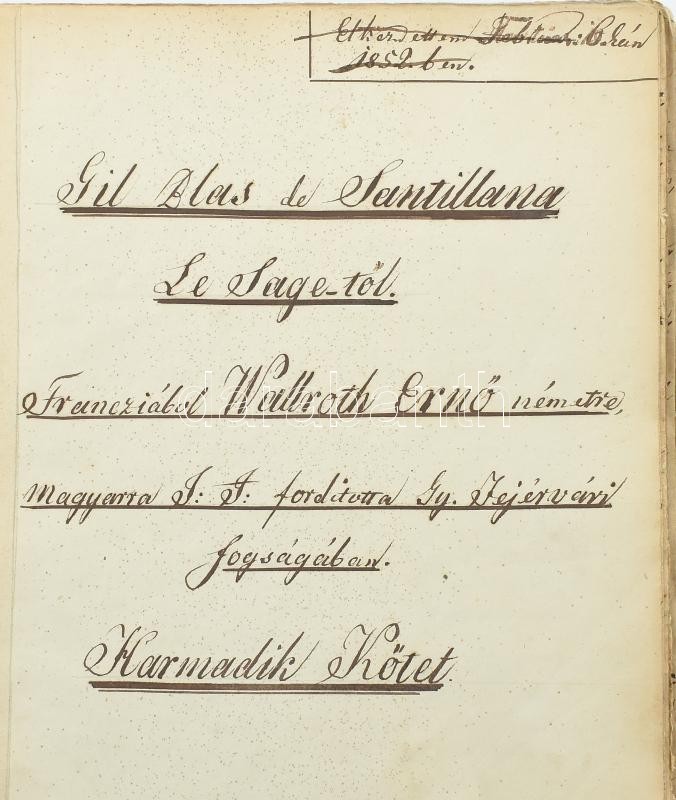 Elkezdettem Februári 6.kán
1852.ben.
Gil Blas de Santillana
Le Sage-tól.
Francziából Wallroth Ernő németre,
magyarra J: F: fordította Gy. Fejérvári
fogságában.
Harmadik Kötet.
darabanth